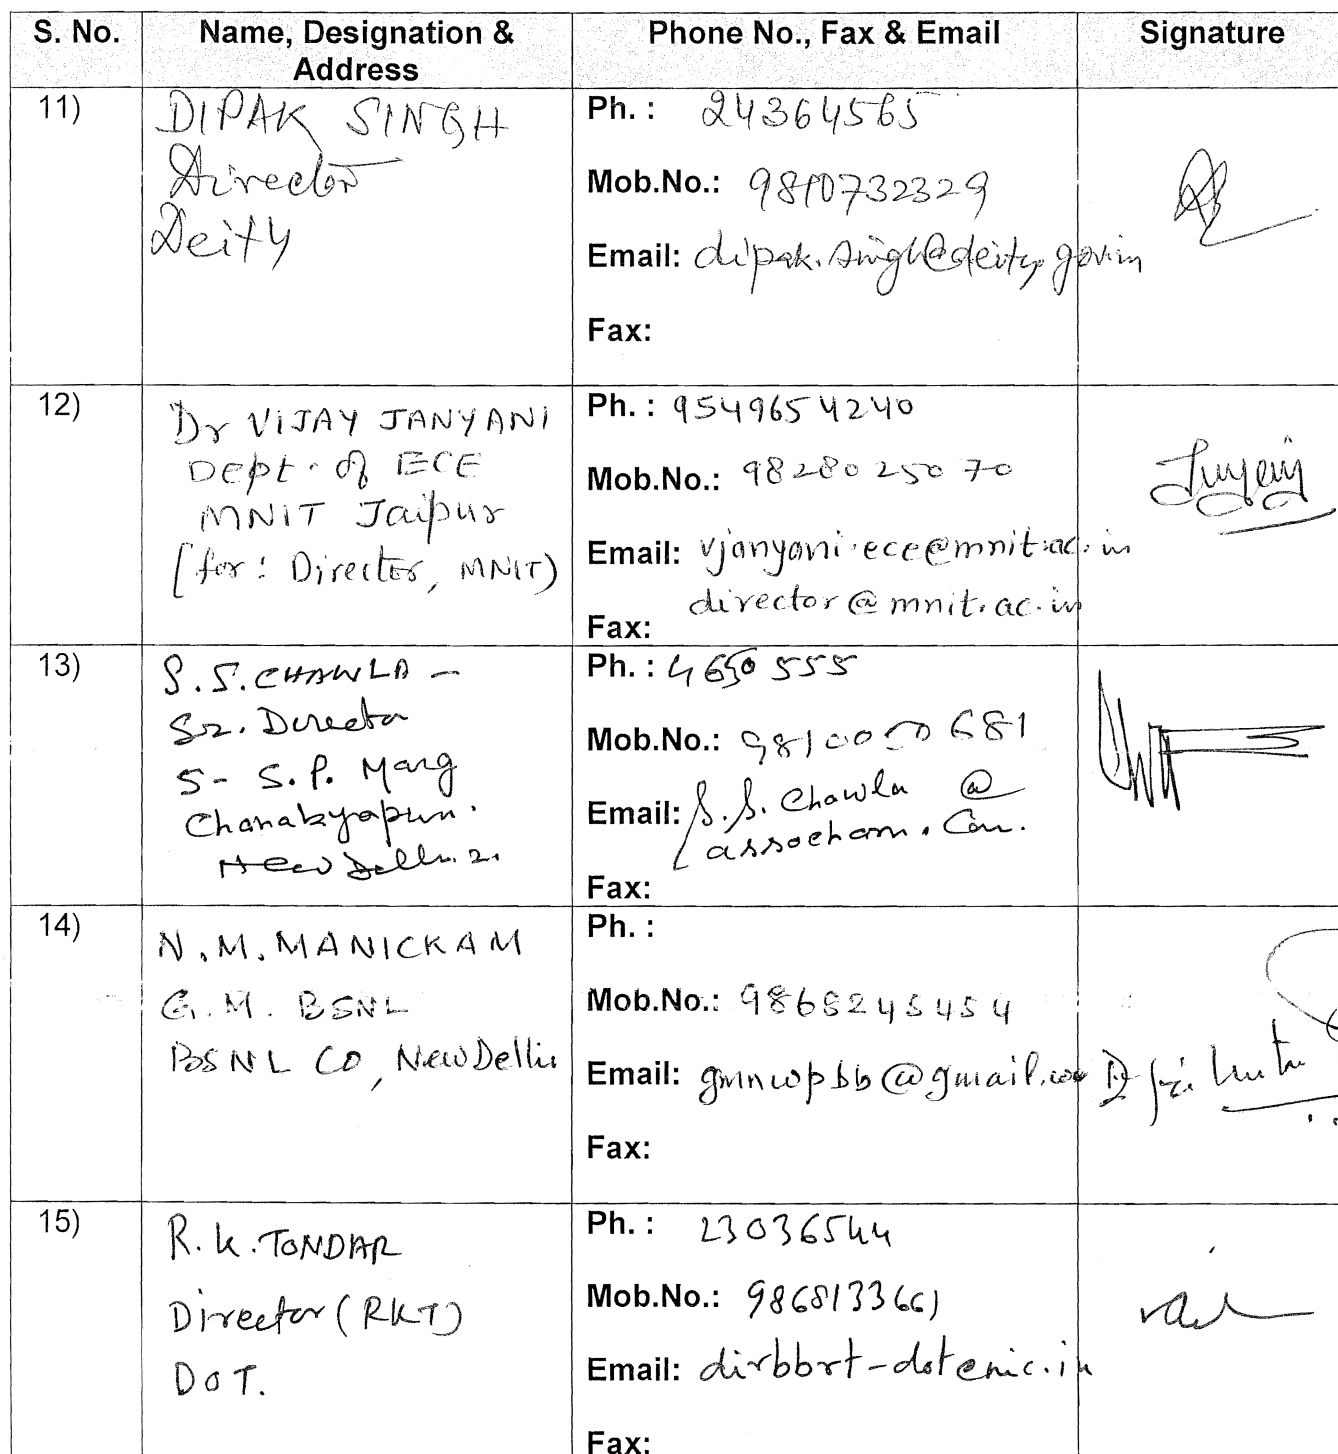 S. No. Name, Designation & Address Phone No., Fax & Email Signature
11) DIPAK SINGH
Director
Deity
Ph. : 24364565
Mob.No.: 9810732329
Email: dipak.singh@deity.gov.in
Fax:
12) Dr VIJAY JANYANI
Dept. of ECE
MNIT Jaipur
[for: Director, MNIT)
Ph. : 9549654240
Mob.No.: 9828025070
Email: vjanyani.ece@mnit.ac.in
director@mnit.ac.in
Fax:
13) S.S. CHAWLA -
Sr. Director
5- S.P. Marg
Chanakyapuri.
New Delhi. 21
Ph. : 4650 555
Mob.No.: 9810050681
Email: S.S. Chawla @
assocham. Com.
Fax:
14) N.M. MANICKAM
G.M. BSNL
BSNL CO, New Delhi
Ph. :
Mob.No.: 9868245454
Email: gmnwpbb@gmail.com
Fax:
15) R.K. TONDAR
Director (RKT)
DOT.
Ph. : 23036544
Mob.No.: 9868133661
Email: dirbbrt-dot@nic.in
Fax: